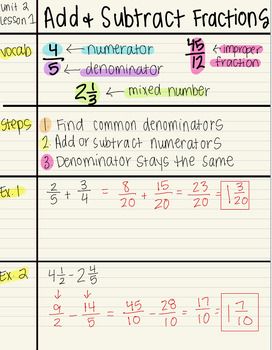 unit 2
Lesson 1
Add & Subtract Fractions
vocab
4/5 ← numerator
← denominator
45/12 ← improper fraction
2 1/3 ← mixed number
steps
1 Find common denominators
2 Add or subtract numerators
3 Denominator stays the same
Ex. 1
2/5 + 3/4 = 8/20 + 15/20 = 23/20 = 1 3/20
Ex 2
4 1/2 - 2 4/5
↓ ↓
9/2 - 14/5 = 45/10 - 28/10 = 17/10 = 1 7/10